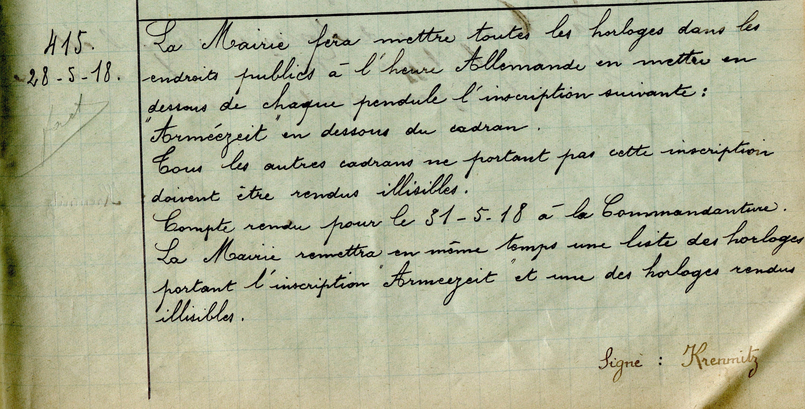 415.
28-5-18.
fait
La Mairie fera mettre toutes les horloges dans les
endroits publics à l'heure Allemande en mettre en
dessous de chaque pendule l'inscription suivante:
"Arméezeit" en dessous du cadran.
Tous les autres cadrans ne portant pas cette inscription
doivent être rendus illisibles.
Compte rendu pour le 31-5-18 à la Commandanture.
La Mairie remettra en même temps une liste des horloges
portant l'inscription "Armeezeit" et une des horloges rendus
illisibles.
Signé : Krenmitz